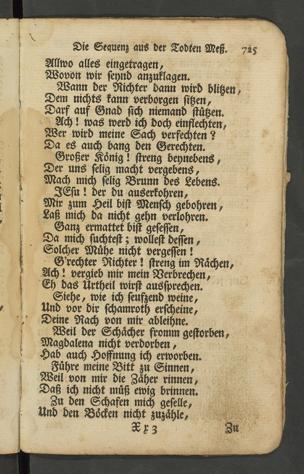 Die Sequenz aus der Todten Meß. 725
Allwo alles eingetragen,
Wovon wir seynd anzuklagen.
Wann der Richter dann wird blitzen,
Dem nichts kann verborgen sitzen,
Darf auf Gnad sich niemand stützen.
Ach! was werd ich doch einflechten,
Wer wird meine Sach verfechten?
Da es auch bang den Gerechten.
Großer König! streng beynebens,
Der uns selig macht vergebens,
Mach mich selig Brunn des Lebens.
JEsu! der du auserkohren,
Mir zum Heil bist Mensch gebohren,
Laß mich da nicht gehn verlohren.
Ganz ermattet bist gesessen,
Da mich suchtest; wollest dessen,
Solcher Mühe nicht vergessen!
G'rechter Richter! streng im Rächen,
Ach! vergieb mir mein Verbrechen,
Eh das Urtheil wirst aussprechen.
Siehe, wie ich seufzend weine,
Und vor dir schamroth erscheine,
Deine Rach von mir ableihne.
Weil der Schächer fromm gestorben,
Magdalena nicht verdorben,
Hab auch Hoffnung ich erworben.
Führe meine Bitt zu Sinnen,
Weil von mir die Zäher rinnen,
Daß ich nicht müß ewig brinnen.
Zu den Schafen mich geselle,
Und den Böcken nicht zuzähle,
Xx3 Zu